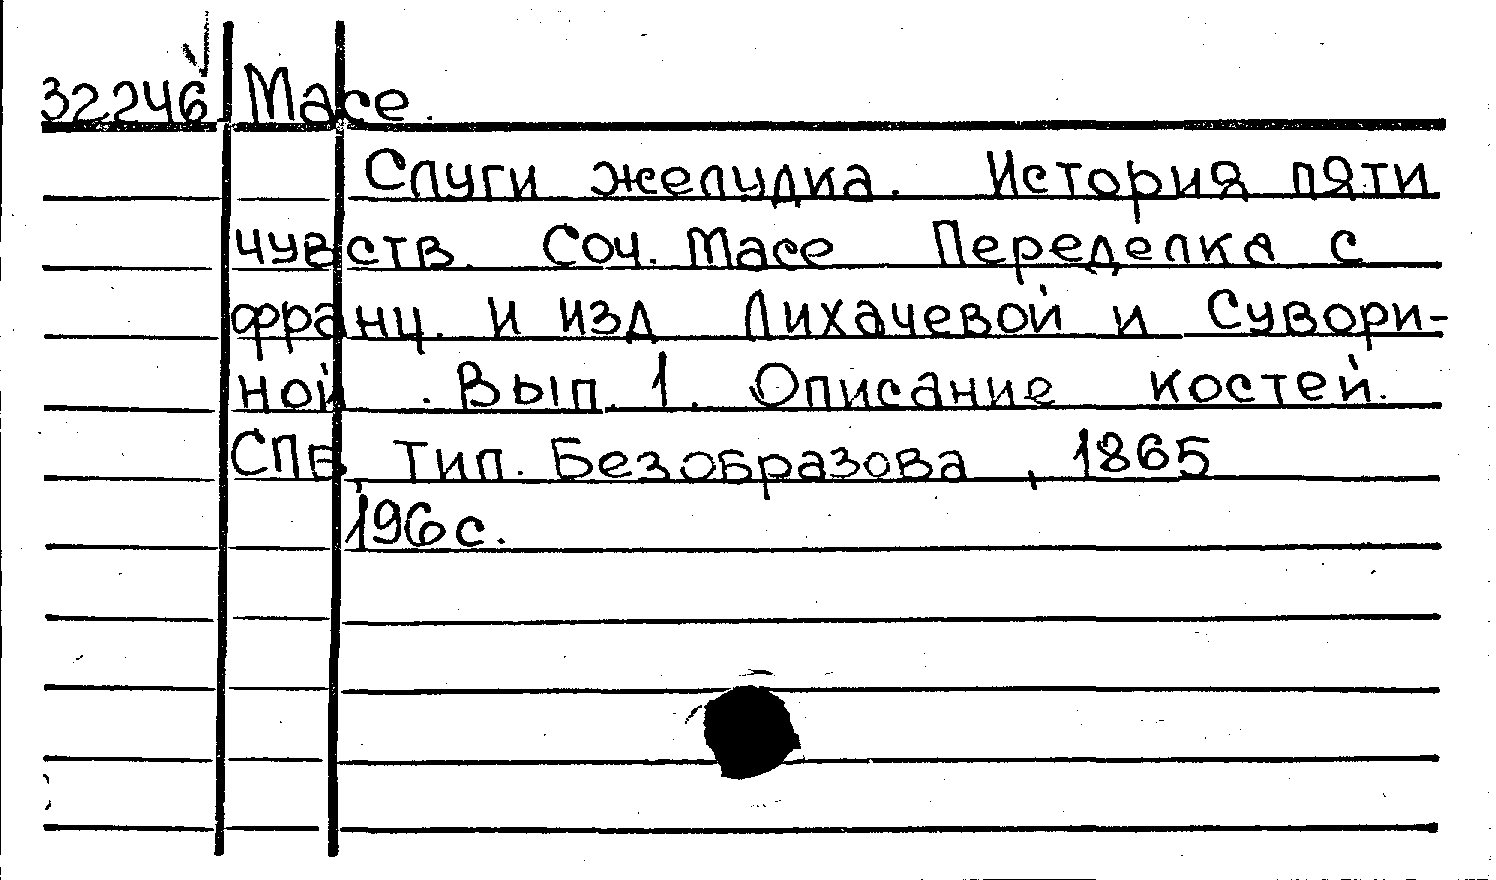 32246 Масе.
Слуги желудка. История пяти
чувств. Соч. Масе Переделка с
франц. и изд Лихачевой и Сувори-
ной. Вып. 1. Описание костей.
СПБ, Тип. Безобразова, 1865
196 с.